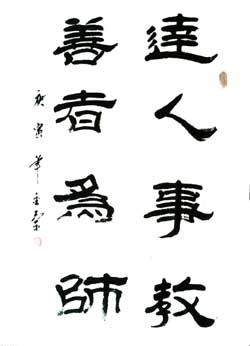 達人事教
善者為師
庚寅年